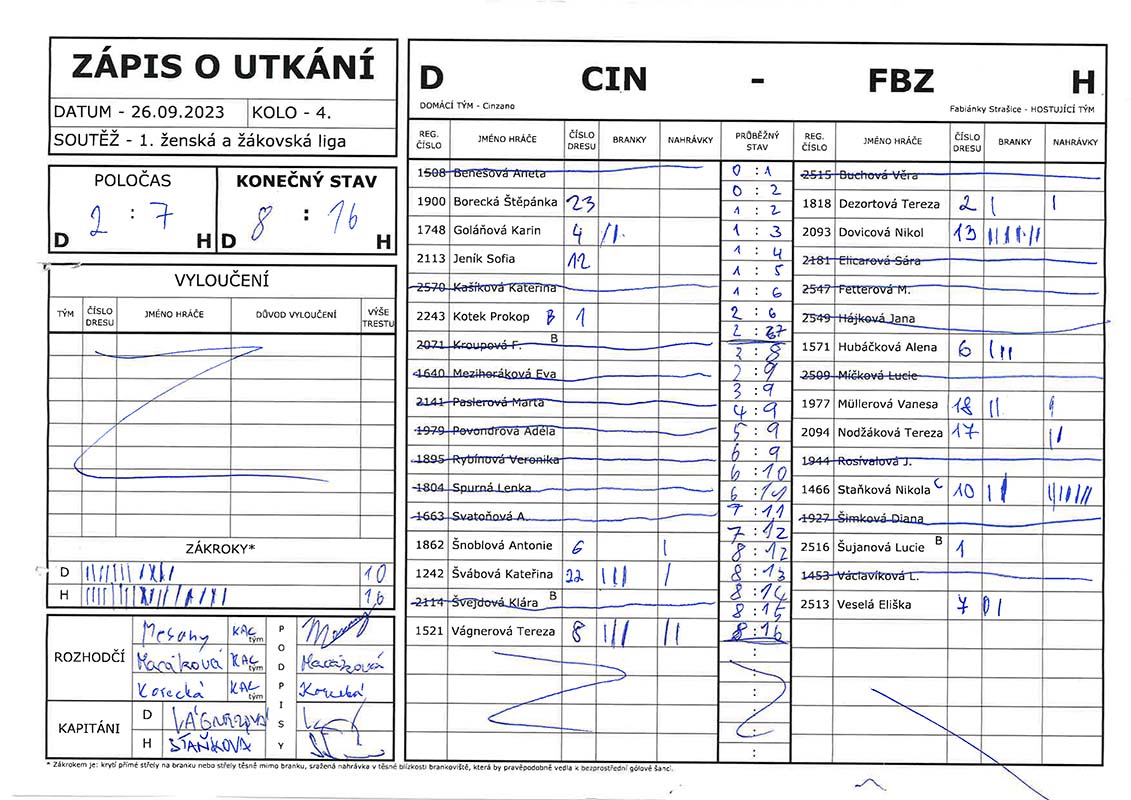 ZÁPIS O UTKÁNÍ
DATUM - 26.09.2023 KOLO - 4.
SOUTĚŽ - 1. ženská a žákovská liga
POLOČAS KONEČNÝ STAV
2 : 7 8 : 16
D H D H
VYLOUČENÍ
TÝM ČÍSLO DRESU JMÉNO HRÁČE DŮVOD VYLOUČENÍ VÝŠE TRESTU
ZÁKROKY*
D 10
H 16
ROZHODČÍ
Mesany KAC tým
Maráková KAC tým Maráková
Korecká KAC tým Korecká
PODPISY
KAPITÁNI
D VÁGNEROVÁ
H STAŇKOVA
D CIN - FBZ H
DOMÁCÍ TÝM - Cinzano Fabiánky Strašice - HOSTUJÍCÍ TÝM
REG. ČÍSLO JMÉNO HRÁČE ČÍSLO DRESU BRANKY NAHRÁVKY PRŮBĚŽNÝ STAV REG. ČÍSLO JMÉNO HRÁČE ČÍSLO DRESU BRANKY NAHRÁVKY
1508 Benešová Aneta
1900 Borecká Štěpánka 23
1748 Goláňová Karin 4
2113 Jeník Sofia 12
2570 Kašíková Kateřina
2243 Kotek Prokop B 1
2071 Kroupová F. B
1640 Mezihoráková Eva
2141 Paslerová Marta
1979 Povondrová Adéla
1895 Rybínová Veronika
1804 Spurná Lenka
1663 Svatoňová A.
1862 Šnoblová Antonie 6
1242 Švábová Kateřina 22
2114 Švejdová Klára B
1521 Vágnerová Tereza 8
0 : 1
0 : 2
1 : 2
1 : 3
1 : 4
1 : 5
1 : 6
2 : 6
2 : 7
2 : 8
2 : 9
3 : 9
4 : 9
5 : 9
6 : 9
6 : 10
6 : 11
7 : 11
7 : 12
8 : 12
8 : 13
8 : 14
8 : 15
8 : 16
2515 Buchová Věra
1818 Dezortová Tereza 2
2093 Dovicová Nikol 13
2181 Elicarová Sára
2547 Fetterová M.
2549 Hájková Jana
1571 Hubáčková Alena 6
2509 Míčková Lucie
1977 Müllerová Vanesa 18
2094 Nodžáková Tereza 17
1944 Rosívalová J.
1466 Staňková Nikola C 10
1927 Šimková Diana
2516 Šujanová Lucie B 1
1453 Václavíková L.
2513 Veselá Eliška 7
* Zákrokem je: krytí přímé střely na branku nebo střely těsně mimo branku, sražená nahrávka v těsné blízkosti brankoviště, která by pravěpodobně vedla k bezprostřední gólové šanci.